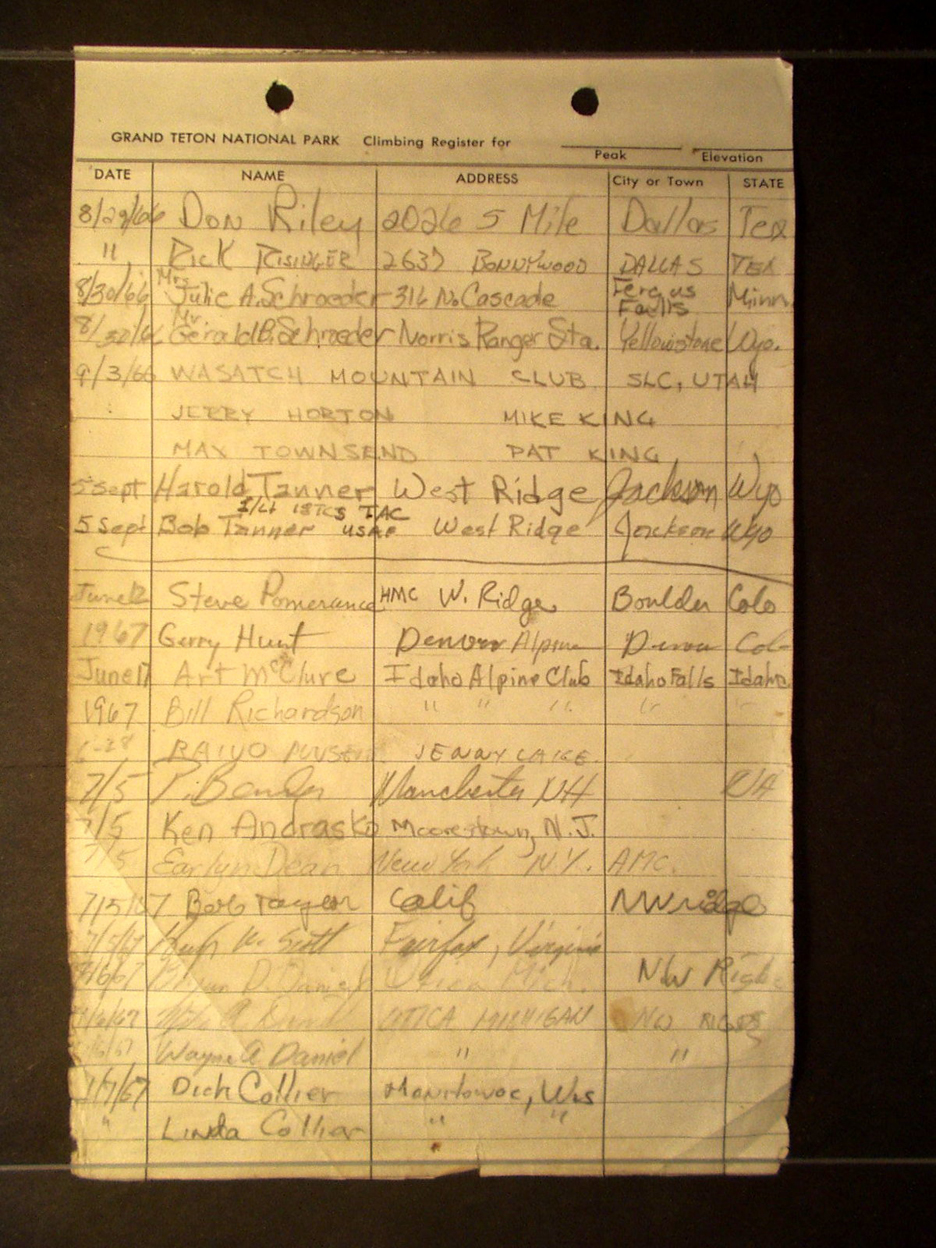 GRAND TETON NATIONAL PARK Climbing Register for
Peak Elevation
DATE NAME ADDRESS City or Town STATE
8/29/66 Don Riley 2026 5 Mile Dallas Tex
" RICK RISINGER 2637 BONNYWOOD DALLAS TEX
8/30/66 Mrs. Julie A. Schroeder 316 No. Cascade Fergus Falls Minn.
8/30/66 Mr Gerald B. Schroeder Norris Ranger Sta. Yellowstone Wyo.
9/3/66 WASATCH MOUNTAIN CLUB SLC, UTAH
JERRY HORTON MIKE KING
MAX TOWNSEND PAT KING
5 Sept Harold Tanner West Ridge Jackson Wyo
5 Sept Bob Tanner 1/Lt TAC USAF West Ridge Jackson Wyo
June 12 Steve Pomerance HMC W. Ridge Boulder Colo
1967 Gerry Hunt Denver Alpine Denver Col
June 17 Art McClure Idaho Alpine Club Idaho Falls Idaho
1967 Bill Richardson " " " " "
6-28 JENNY LAKE
7/5 P. Bender Manchester NH
7/5 Ken Andrasko Moorestown, N.J.
7/5 Earlyn Dean New York N.Y. AMC.
7/5/67 Bob Taylor Calif NW ridge
7/5/67 Hugh Scott Fairfax, Virginia
D. Daniel Utica Mich. NW Ridge
UTICA MICHIGAN NW RIDGE
Wayne A Daniel " "
7/7/67 Dick Collier Manitowoc, Wis
" Linda Collier " "